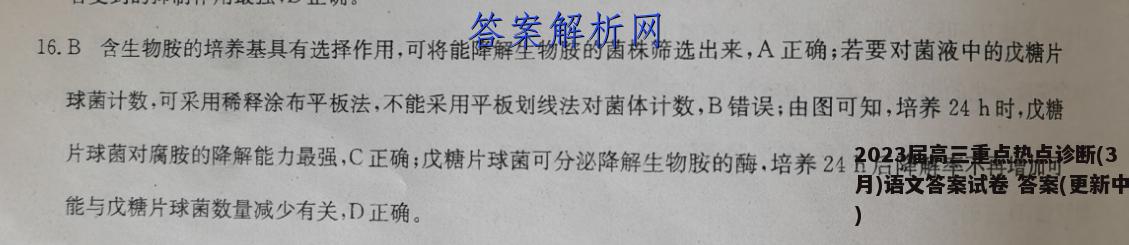 答案解析网
16. B 含生物胺的培养基具有选择作用,可将能降解生物胺的菌株筛选出来,A 正确;若要对菌液中的戊糖片
球菌计数,可采用稀释涂布平板法,不能采用平板划线法对菌体计数,B 错误;由图可知,培养 24 h 时,戊糖
片球菌对腐胺的降解能力最强,C 正确;戊糖片球菌可分泌降解生物胺的酶,培养 24 h 后降解率不再增加可
能与戊糖片球菌数量减少有关,D 正确。
2023届高三重点热点诊断(3
月)语文答案试卷 答案(更新中
)